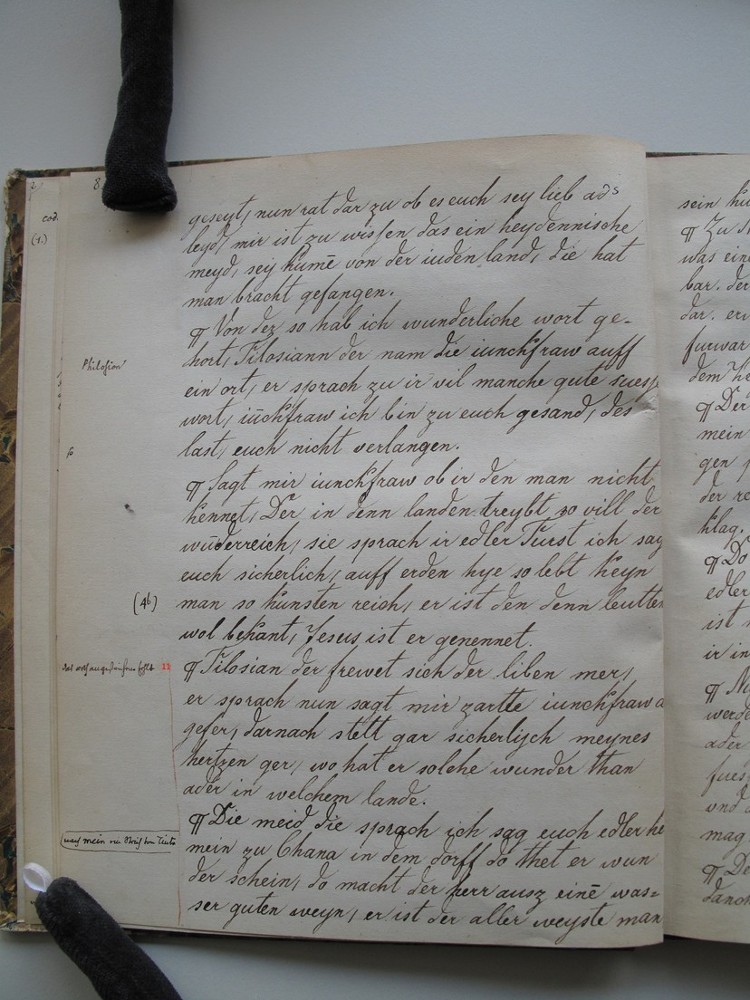 8
geseyt, nun rat dar zu ob es euch sey lieb ads
leyd, mir ist zu wissen das ein heydennische
meyd, sey kumē von der iuden land, die hat
man bracht gefangen.
¶ Von dez so hab ich wunderliche wort ge-
hort, Tilosiann der nam die iunckfraw auff
ein ort, er sprach zu ir vil manche gute suesse
wort, iūckfraw ich bin zu euch gesand, des
last, euch nicht verlangen.
¶ Sagt mir iunckfraw ob ir den man nicht
kennet, Der in denn landen treybt so vill der
wūderreich, sie sprach ir edler Furst ich sag
euch sicherlich, auff erden hye so lebt keyn
man so kunsten reich, er ist den denn leutten
wol bekant, Jesus ist er genennet.
¶ Tilosian der frewet sich der liben mer,
er sprach nun sagt mir zartte iunckfraw a
gefer, darnach stett gar sicherlijch meynes
hertzen ger, wo hat er solche wunder than
ader in welchem lande.
¶ Die meid die sprach ich sag euch edler he
mein zu Chana in dem dorff do thet er wun
der schein, do macht der herr ausz einē was=
ser guten weyn, er ist der aller weyste man
cod.
(1.)
Philosian
(4b)
11
sein
¶ Zu
was ein
bar. der
dar. er
furwar
dem
¶ Der
mein
gen
der re
klag.
¶ Do
edler
ist
ir in
¶
werde
ader
fues
vnd
mag
¶ De
danck